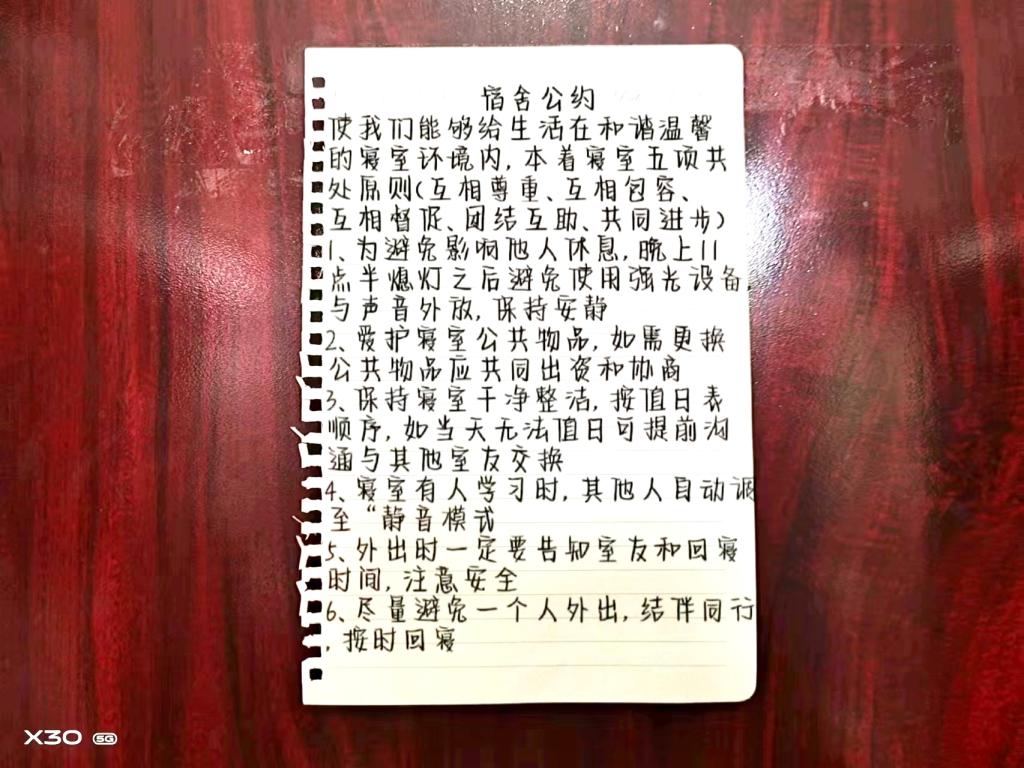 宿舍公约
使我们能够给生活在和谐温馨
的寝室环境内,本着寝室五项共
处原则(互相尊重、互相包容、
互相督促、团结互助、共同进步)
1、为避免影响他人休息,晚上11
点半熄灯之后避免使用强光设备,
与声音外放,保持安静
2、爱护寝室公共物品,如需更换
公共物品应共同出资和协商
3、保持寝室干净整洁,按值日表
顺序,如当天无法值日可提前沟
通与其他室友交换
4、寝室有人学习时,其他人自动调
至“静音模式
5、外出时一定要告知室友和回寝
时间,注意安全
6、尽量避免一个人外出,结伴同行
,按时回寝
X30 5G